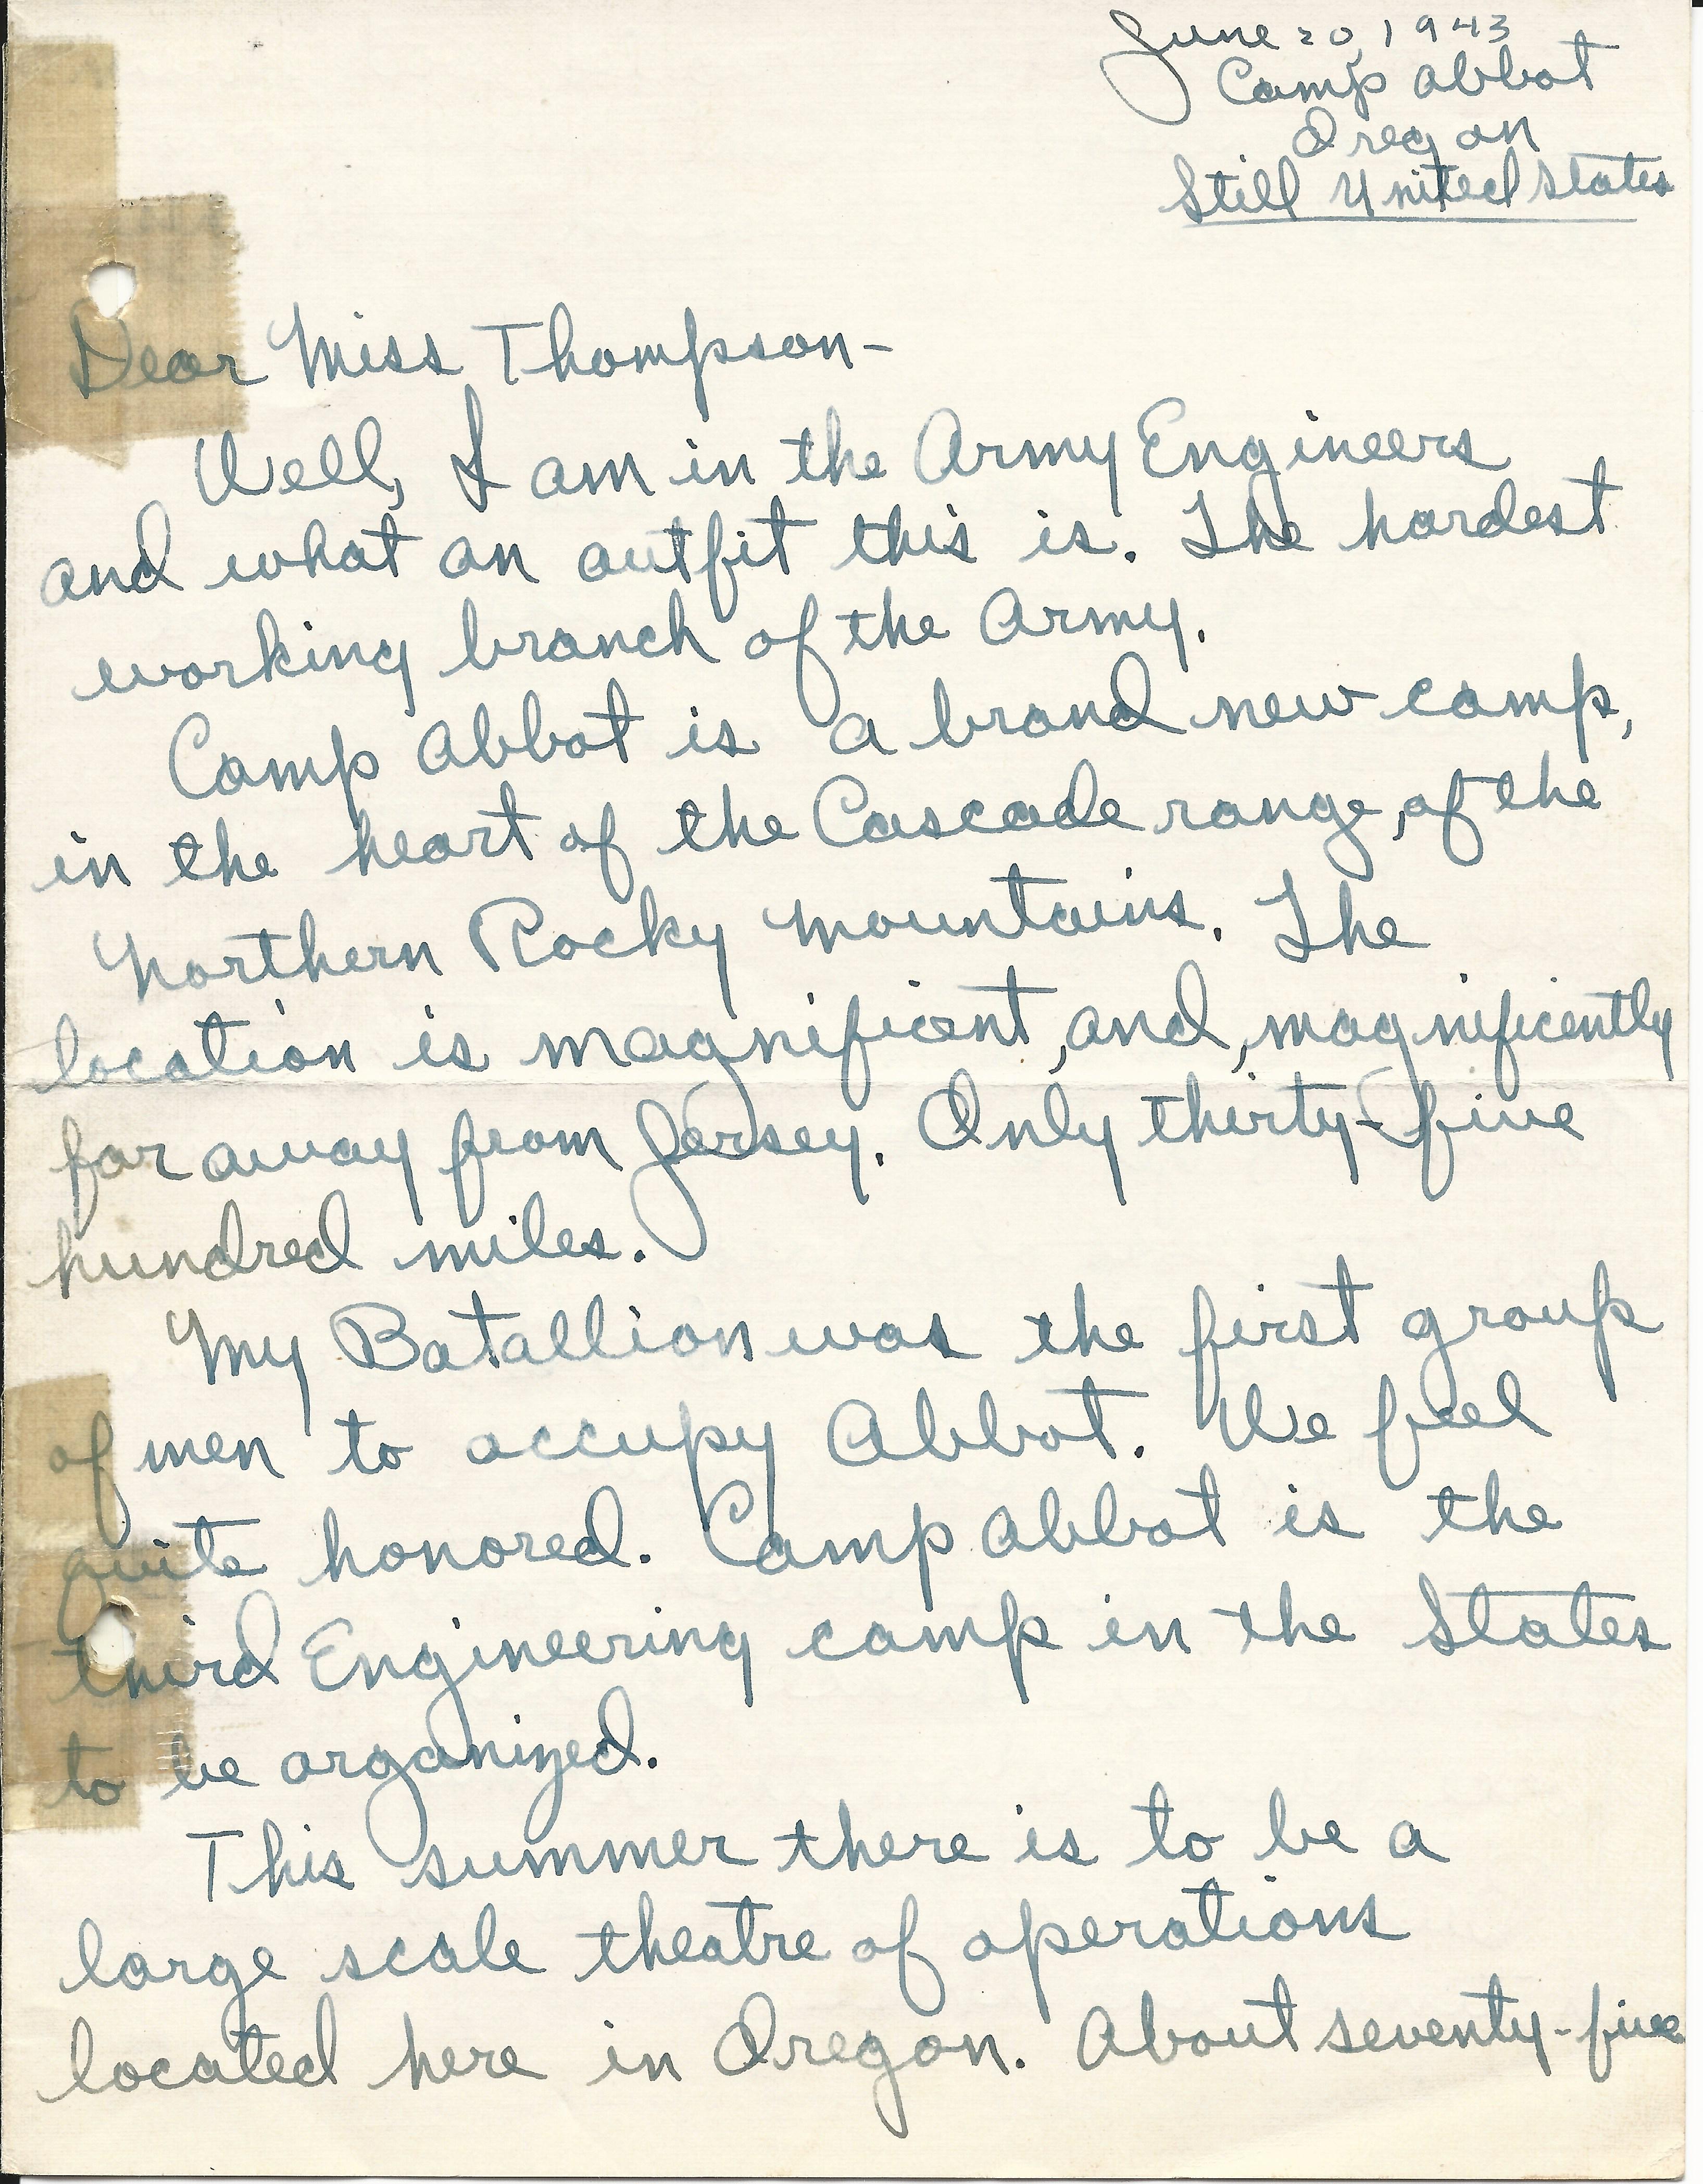 June 20, 1943
Camp Abbot
Oregon
Still United States
Dear Miss Thompson-
Well, I am in the Army Engineers
and what an outfit this is. The hardest
working branch of the Army.
Camp Abbot is a brand new camp,
in the heart of the Cascade range, of the
Northern Rocky Mountains. The
location is magnificent, and, magnificently
far away from Jersey. Only thirty-five
hundred miles.
My Batallion was the first group
of men to occupy Abbot. We feel
quite honored. Camp Abbot is the
third Engineering camp in the States
to be organized.
This summer there is to be a
large scale theatre of operations
located here in Oregon. About seventy-five